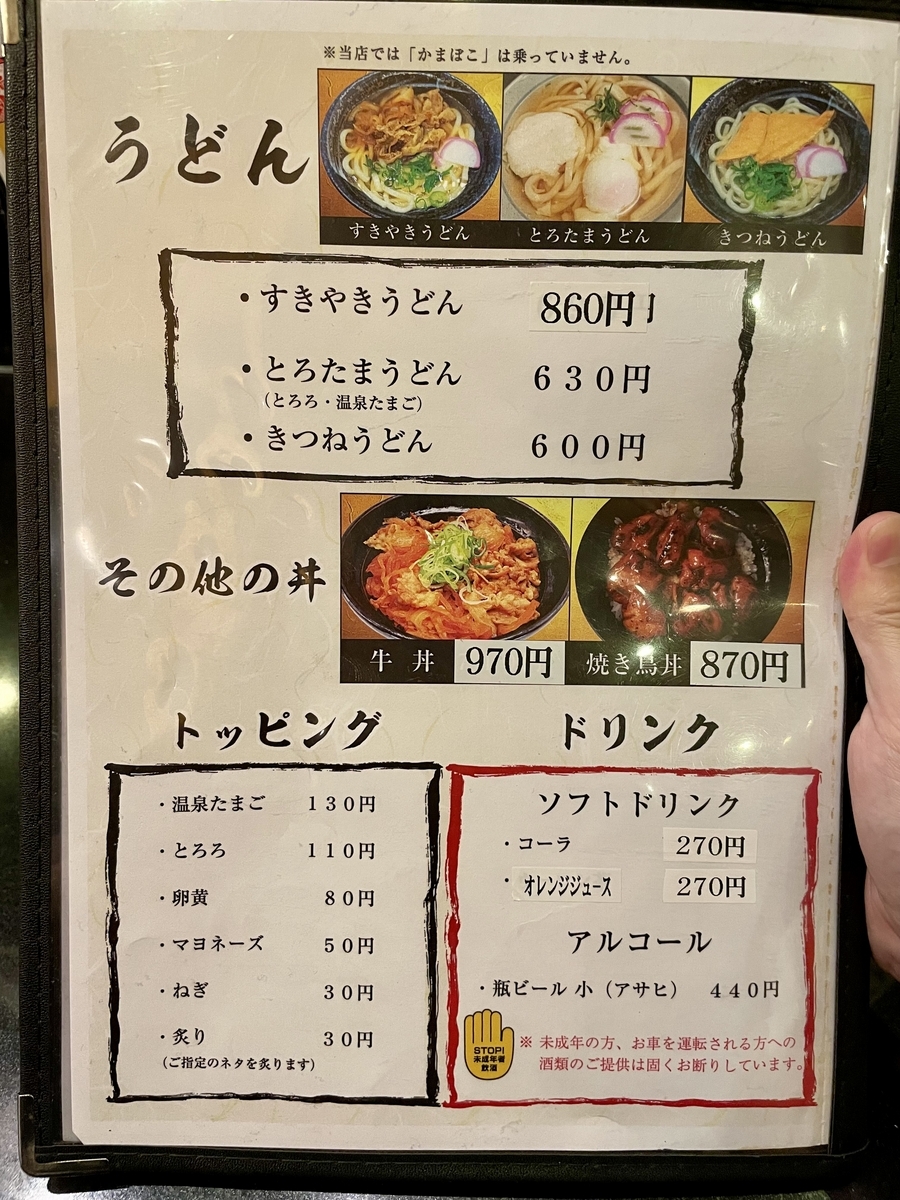 ※当店では「かまぼこ」は乗っていません。
うどん
すきやきうどん とろたまうどん きつねうどん
・すきやきうどん 860円
・とろたまうどん 630円
(とろろ・温泉たまご)
・きつねうどん 600円
その他の丼
牛 丼 970円 焼き鳥丼 870円
トッピング
・温泉たまご 130円
・とろろ 110円
・卵黄 80円
・マヨネーズ 50円
・ねぎ 30円
・炙り 30円
(ご指定のネタを炙ります)
ドリンク
ソフトドリンク
・コーラ 270円
・オレンジジュース 270円
アルコール
・瓶ビール 小（アサヒ） 440円
STOP!
未成年者
飲酒
※ 未成年の方、お車を運転される方への
酒類のご提供は固くお断りしています。